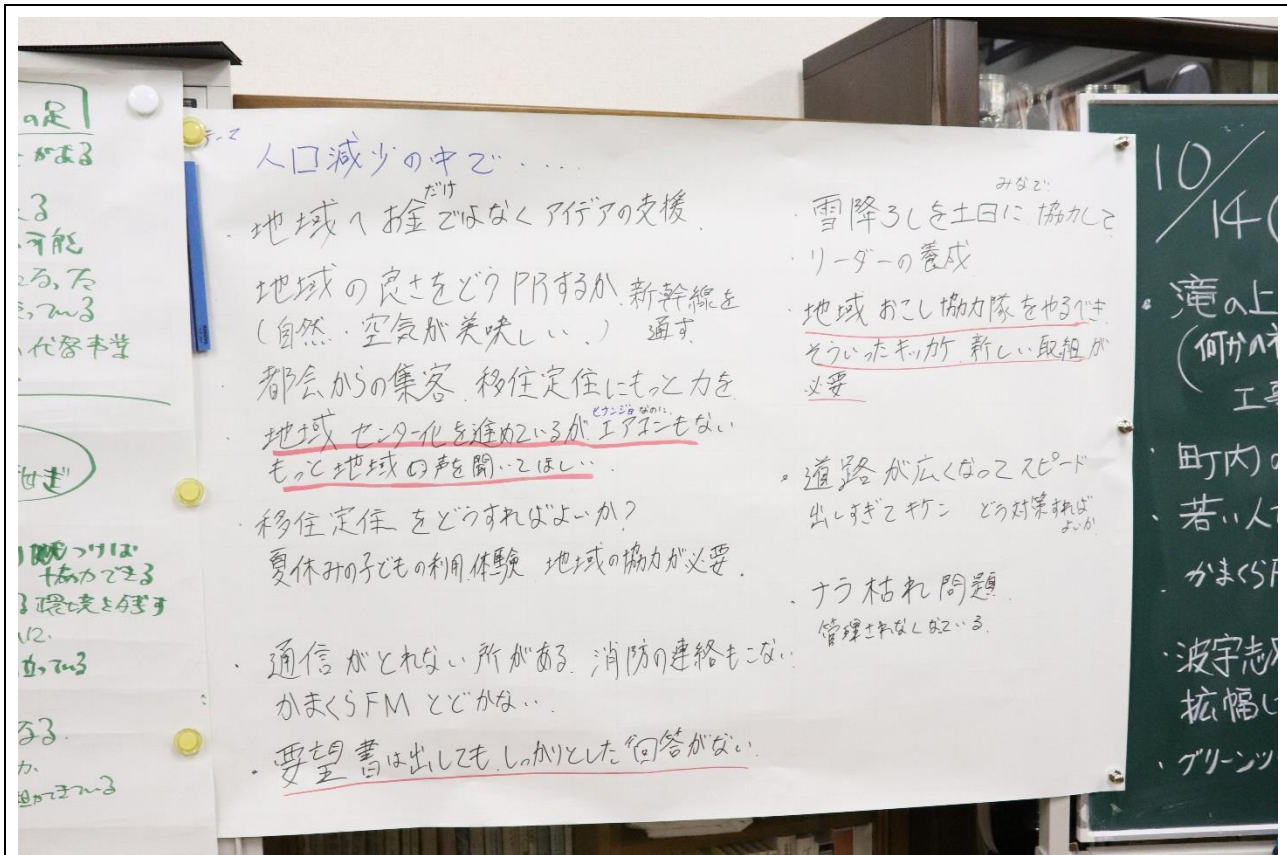 の足
がある
る
可能
っている
代替車堂
つければ
協力できる
環境を残す
立っている
なる
テーマ
人口減少の中で‥‥
だけ
・地域へお金ではなくアイデアの支援
地域の良さをどうPRするか 新幹線を
(自然・空気が美味しい。) 通す
都会からの集客 移住定住にもっと力を
ヒナンジョなのに
・地域センター化を進めているが エアコンもない
もっと地域の声を聞いてほしい
・移住定住をどうすればよいか?
夏休みの子どもの利用体験 地域の協力が必要
・通信がとれない所がある 消防の連絡もこない
かまくらFMとどかない
・要望書は出しても しっかりとした回答がない
みなで
・雪降ろしを土日に協力して
・リーダーの養成
・地域おこし協力隊をやるべき
そういったキッカケ 新しい取組が
必要
・道路が広くなってスピード
出しすぎてキケン どう対策すれば
よいか
・ナラ枯れ問題
管理されなくなている
10/14(
・滝の上
(何かの
工事
・町内の
・若い人
かまくらF
・波宇志
拡幅し
・グリーンツ